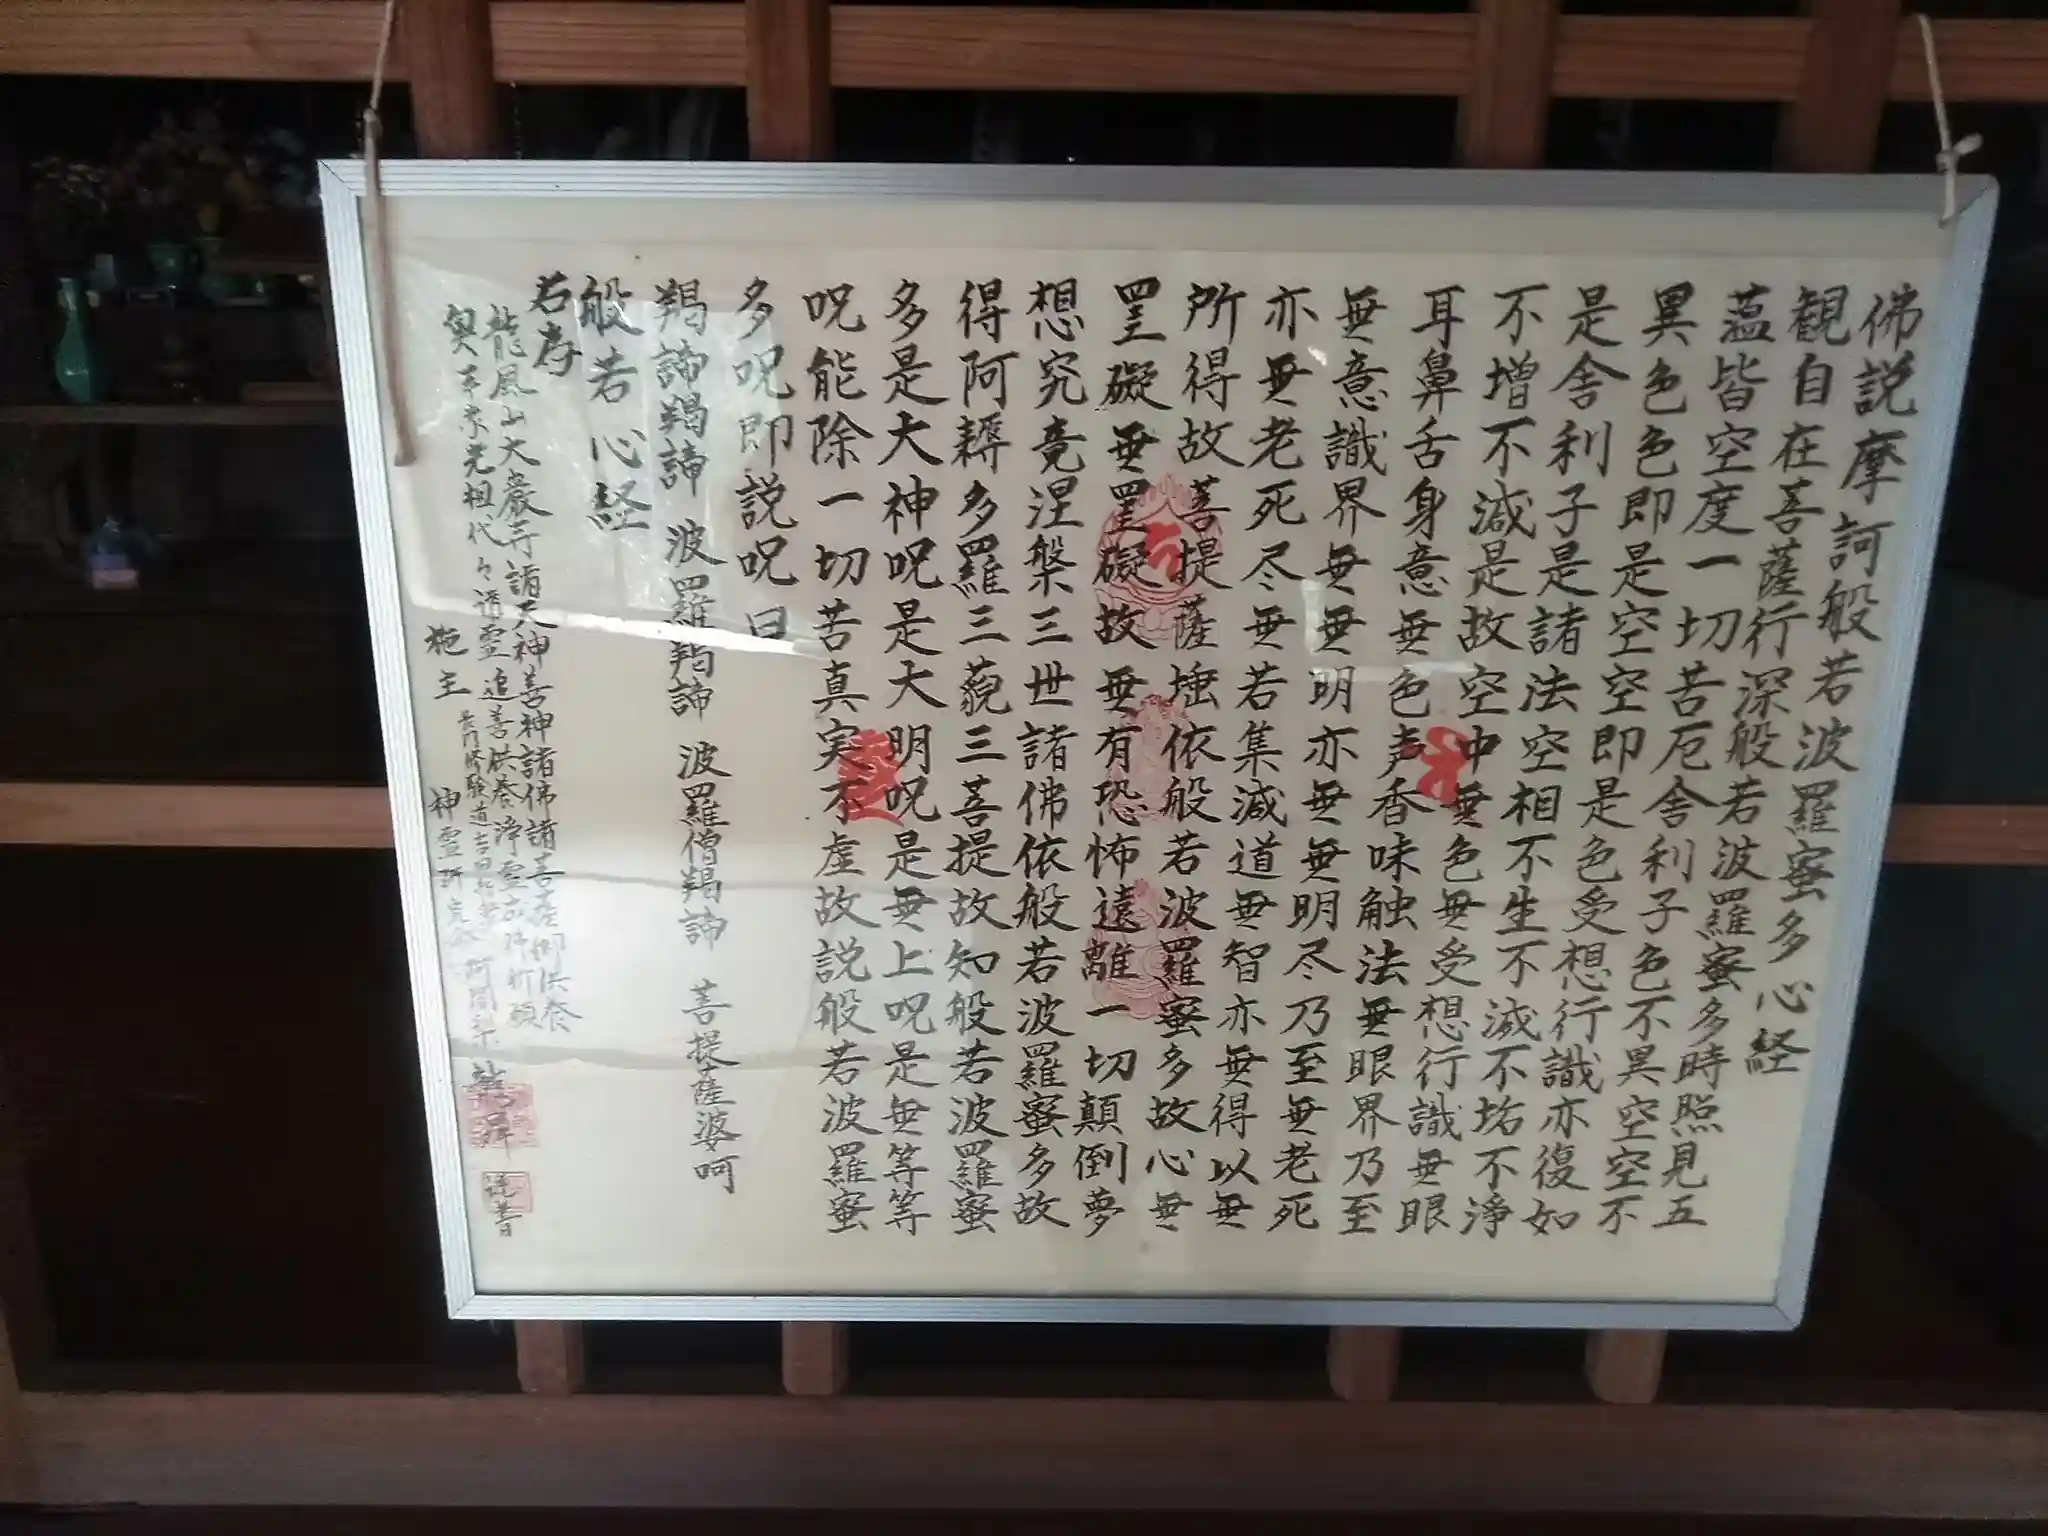 佛説摩訶般若波羅蜜多心経
観自在菩薩行深般若波羅蜜多時照見五
蕰皆空度一切苦厄舎利子色不異空空不
異色色即是空空即是色受想行識亦復如
是舎利子是諸法空相不生不滅不垢不淨
不増不減是故空中無色無受想行識無眼
耳鼻舌身意無色声香味触法無眼界乃至
無意識界無無明亦無無明尽乃至無老死
亦無老死尽無若集滅道無智亦無得以無
所得故菩提薩埵依般若波羅蜜多故心無
罣礙無罣礙故無有恐怖遠離一切顛倒夢
想究竟涅槃三世諸佛依般若波羅蜜多故
得阿耨多羅三藐三菩提故知般若波羅蜜
多是大神呪是大明呪是無上呪是無等等
呪能除一切苦真実不虚故説般若波羅蜜
多呪即説呪曰
羯諦羯諦 波羅羯諦 波羅僧羯諦 菩提薩婆呵
般若心経
龍風山大巖寺諸天神善神諸佛諸菩薩御供養
先祖代々諸霊追善供養浄霊
施主